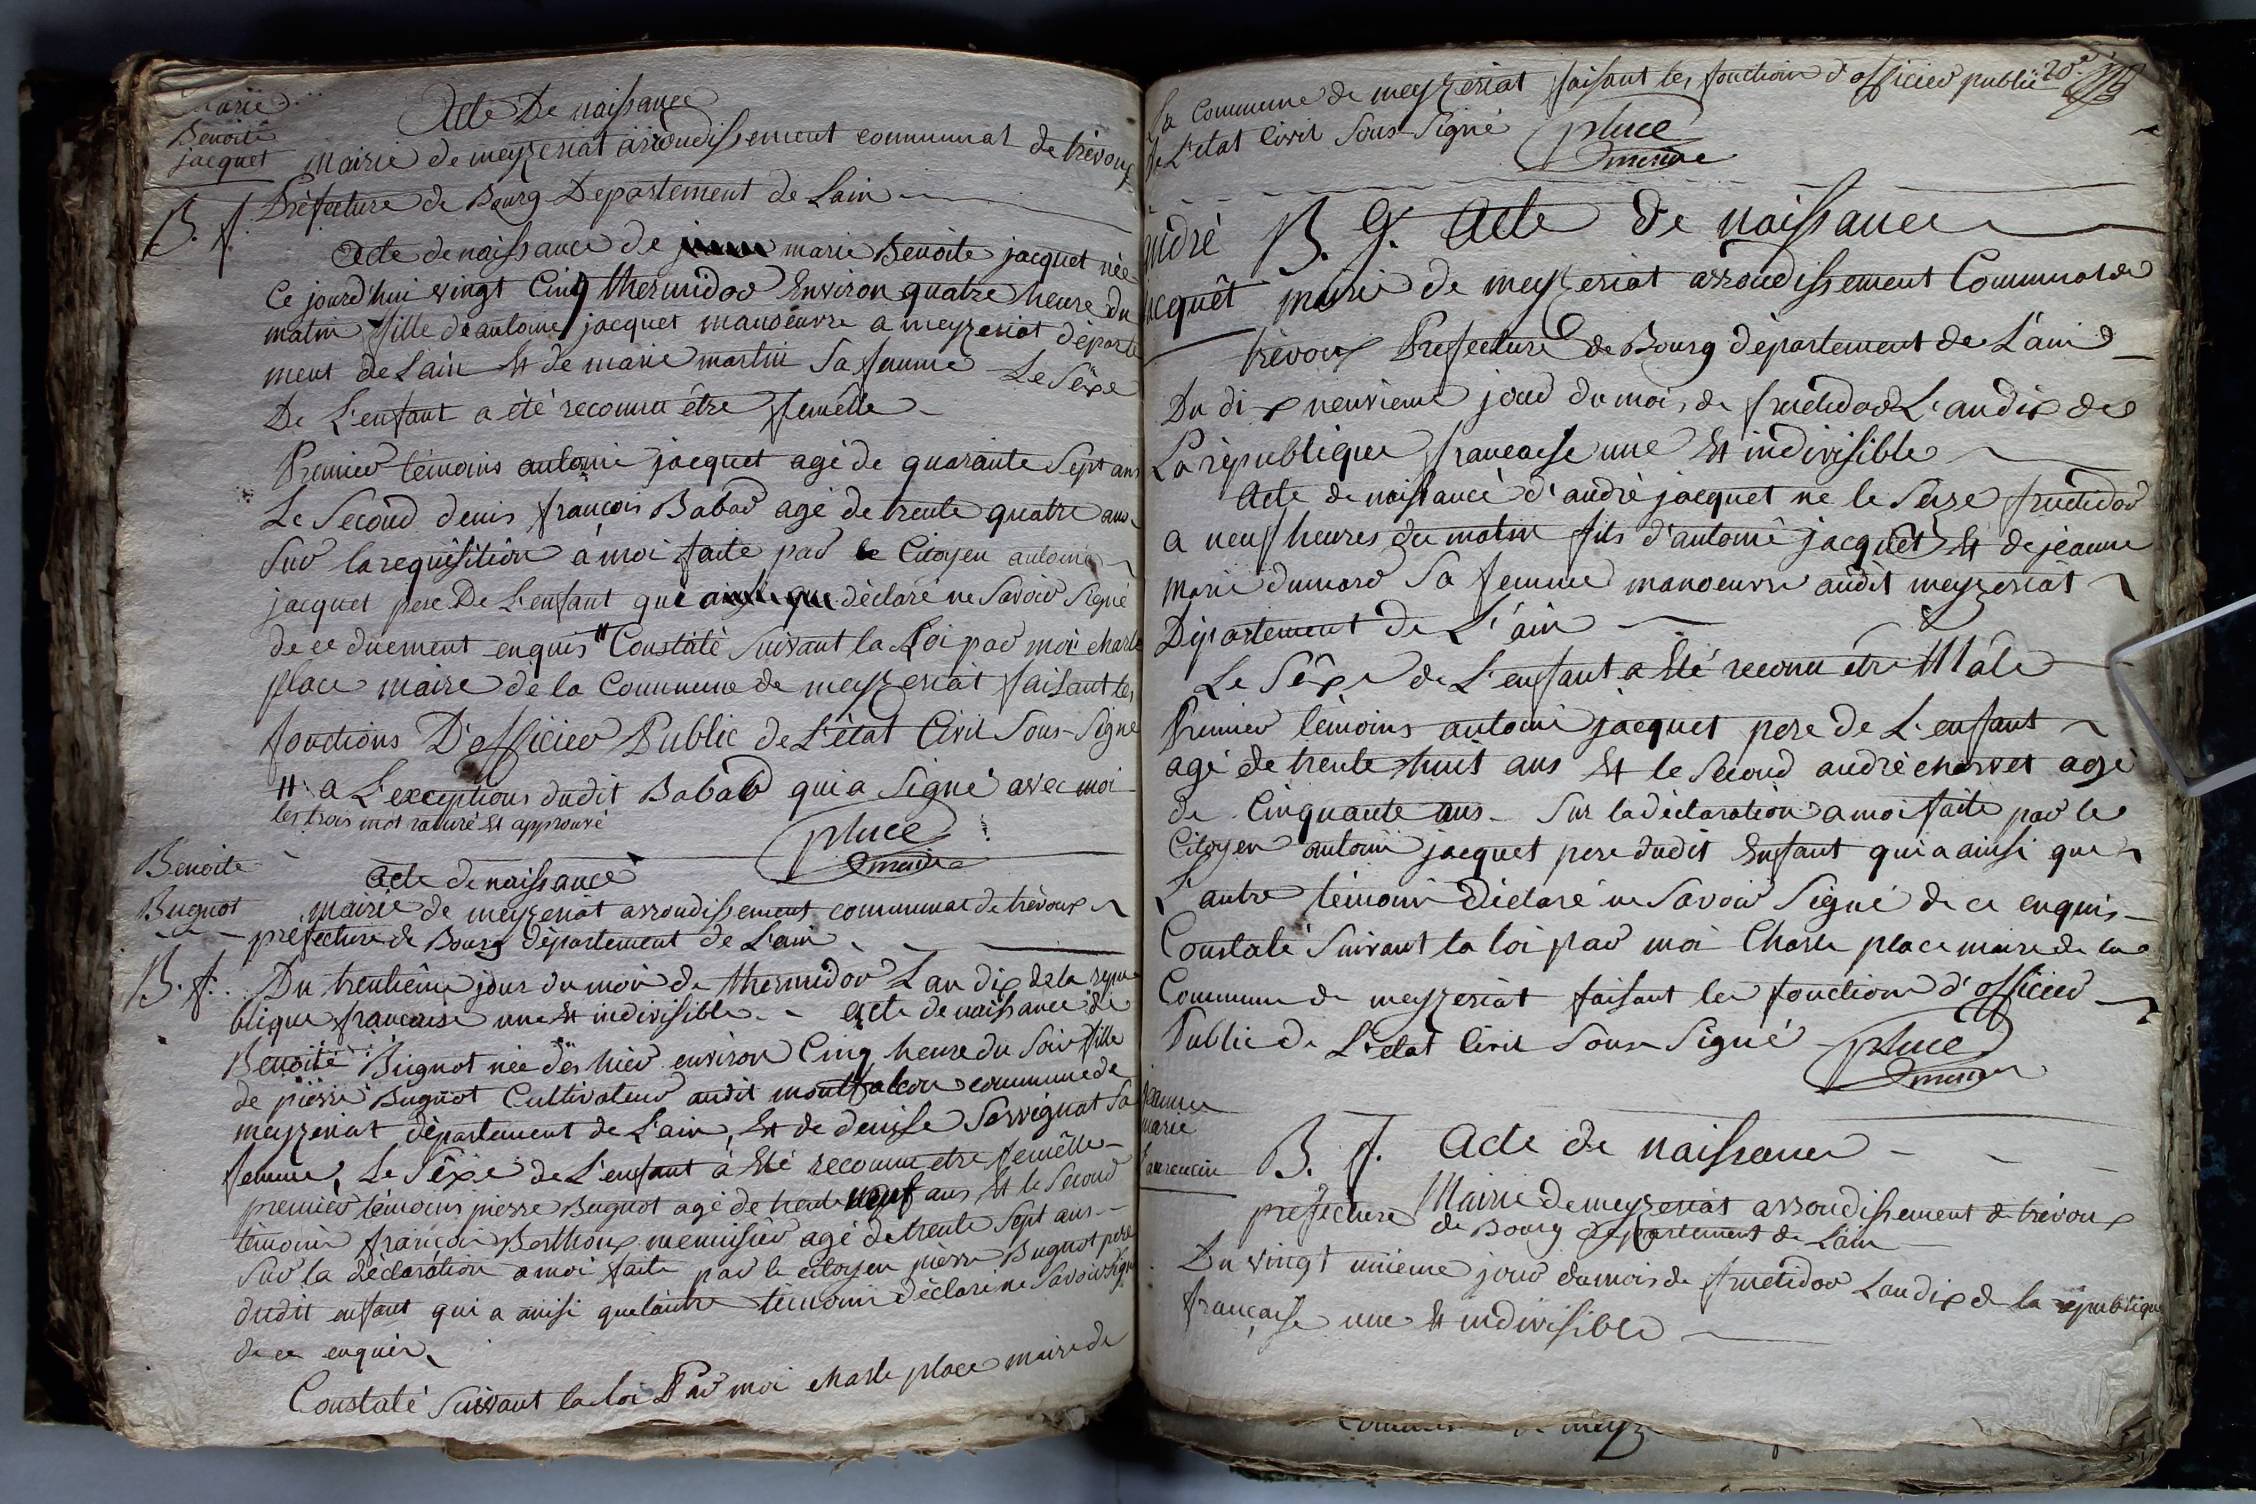 Marie
Benoite
jacquet
Acte De naissance
Mairie de meyzeriat arrondissement communal de trévoux
Préfecture de Bourg Departement de Lain
B. f.
Acte de naissance de marie Benoite jacquet née
Ce jourd'hui vingt Cinq thermidor Environ quatre heure du
matin fille de antoine jacquet manoeuvre a meyzeriat départe
ment de Lain Et de marie martin Sa femme Le Sèxe
De L'enfant a été reconnu être femêlle
Premier témoins antoine jacquet agé de quarante Sept ans
Le Second denis françois Babad agé de trente quatre ans
Sur la requisition à moi faite par le Citoyen antoine
jacquet pere De L'enfant qui déclaré ne Savoir Signé
de ce duement enquis # Constaté Suivant la Loi par moi charle
place maire de la Commune de meyzeriat faisant les
fonctions D'officier Public de L'état Civil Sous-Signé
# a L'exceptions dudit Babad qui a Signé avec moi
les trois mot raturé Et approuvé
place
maire
Benoite
Bugnot
acte de naissance
mairie de meyzeriat arrondissement communal de trévoux
prefecture de Bourg département de Lain
B. f.
Du trentième jour du mois de thermidor Lan dix de la repu
blique francaise une Et indivisible acte de naissance de
Benoite Bugnot née dès hier environ Cinq heure du Soir fille
de pierre Bugnot Cultivateur audit montfalcon commune de
meyzeriat département de Lain, Et de denise Servignat Sa
femme, Le Sèxe de L'enfant à Eté reconnu etre femêlle
premier témoins pierre Bugnot agé de trente neuf ans Et le Second
témoins françois Berthoux menuisier agé de trente Sept ans
Sur la declaration a moi faite par le citoyen pierre Bugnot pere
dudit enfant qui a ainsi que lautre témoin déclaré ne Savoir Signé
de ce enquis
Constaté Suivant la loi Par moi charle place maire de
la Commune de meyzeriat faisant les fonction d'officier public
de L'etat Civil Sous-Signé
place
maire
20e
andré
jacquêt
B. g. Acte de naissance
Mairie de meyzeriat arrondissement Communal de
trévoux Prefecture de Bourg département de L'ain
Du dix neuvieme jour du mois de fructidor L'an dix de
La république francaise une Et indivisible
Acte de naissance d'andré jacquet ne le Seize fructidor
a neuf heures du matin fils d'antoine jacquêt Et de jeanne
Marie dumard Sa femme manoeuvre audit meyzeriat
Département de L'ain
Le Sêxe de L'enfant a Eté reconu être Mâle
Premier témoins antoine jacquet pere de L'enfant
agé de trente huit ans Et le Second andré charvet agé
de Cinquante ans Sur la déclaration a moi faite par le
Citoyen antoine jacquet pere dudit Enfant qui a ainsi que
L'autre témoin Déclaré ne Savoir Signé de ce enquis
Constaté Suivant la loi par moi Charle place maire de la
Commune de meyzeriat faisant les fonction d'officier
Public de L'etat Civil Sous Signé
place
maire
jeanne
marie
laurencin
B. f. Acte de naissance
Mairie de meyzeriat arrondissement de trévoux
préfecture de Bourg département de Lain
Du vingt unième jour du mois de fructidor Lan dix de la république
française une Et indivisible